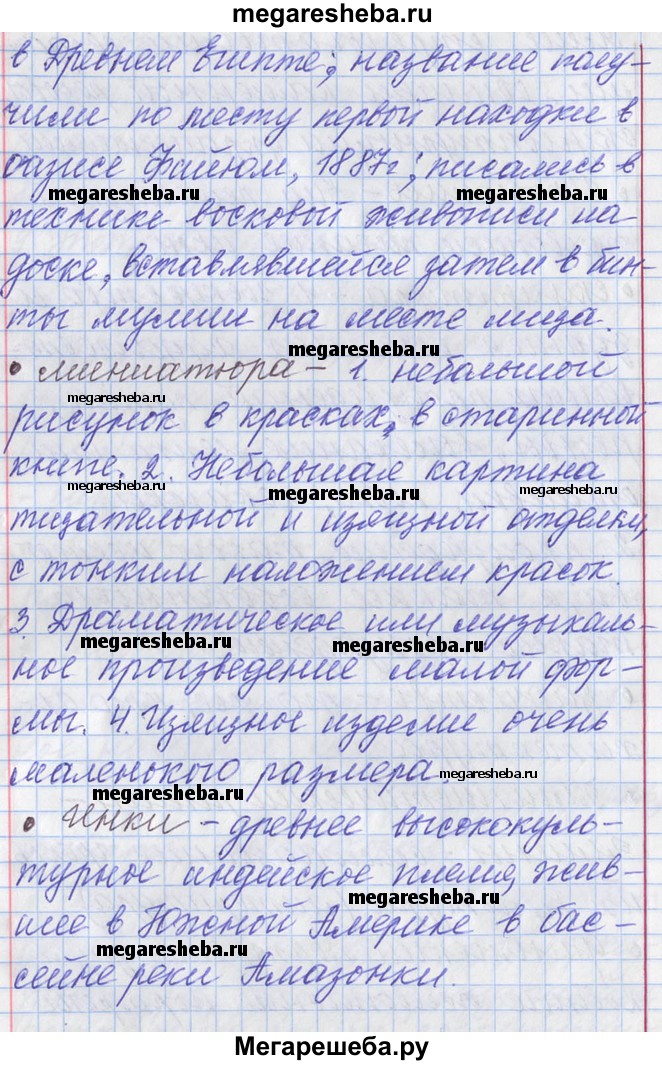 megaresheba.ru
в Древнем Египте; название полу-
чили по месту первой находки в
оазисе Файюм, 1887г; писались в
megaresheba.ru megaresheba.ru
технике восковой живописи на
доске, вставлявшейся затем в бин-
ты мумии на месте лица.
megaresheba.ru
• Миниатюра - 1. небольшой
megaresheba.ru
рисунок в красках, в старинной
megaresheba.ru
книге. 2. Небольшая картина
megaresheba.ru megaresheba.ru megaresheba.ru
тщательной и изящной отделки,
с тонким наложением красок.
3. Драматическое или музыкаль-
megaresheba.ru megaresheba.ru
ное произведение малой фор-
мы. 4. Изящное изделие очень
маленького размера.
megaresheba.ru
megaresheba.ru
• Инки - древнее высококуль-
турное индейское племя, жив-
megaresheba.ru
шее в Южной Америке в бас-
megaresheba.ru
сейне реки Амазонки.
Мегарешеба.ру